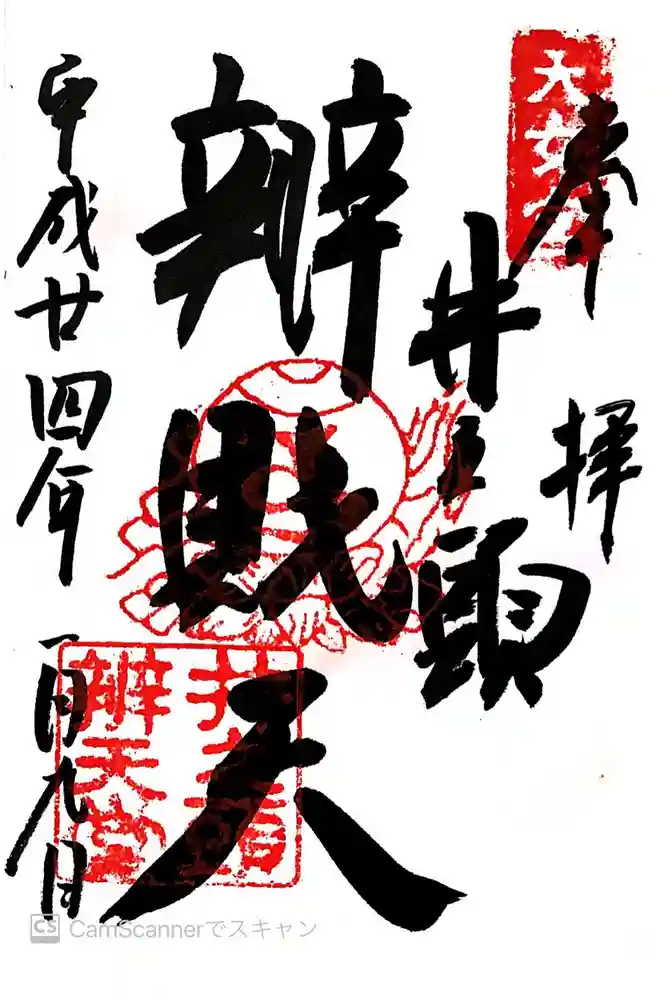 奉拝
大盛寺
井之頭
辨財天
井之頭
辨天堂
平成廿四年一月九日
CS CamScannerでスキャン